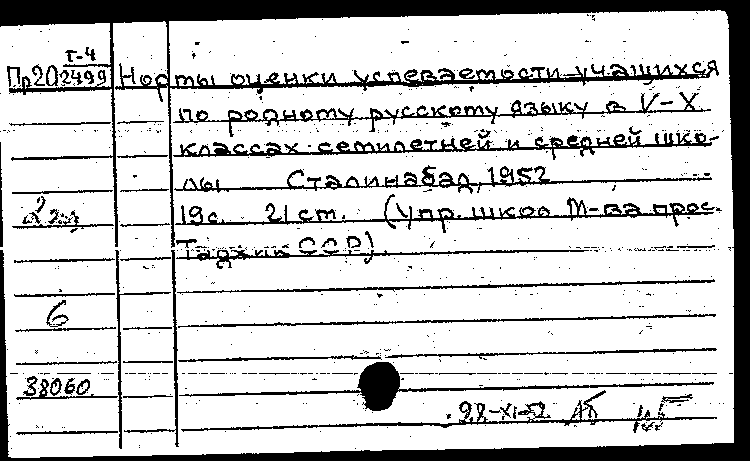 Т-4
Пр20 2499
Нормы оценки успеваемости учащихся
по родному русскому языку в V-X
классах семилетней и средней шко-
лы. Сталинабад, 1952
2 экз
19с. 21 см. (Упр. школ М-ва прос.
Таджик ССР).
6
38060.
28-XI-52